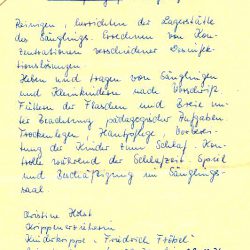 Reinigen, herrichten der Lagerstätte
des Säuglings. Errechnen von Kon-
zentrationen verschiedener Desinfek-
tionslösungen.
Heben und tragen von Säuglingen
und Kleinkindern nach Vorschrift
Füttern der Flaschen und Breie un-
ter Beachtung pädagogischer Aufgaben.
Trockenlegen, Hautpflege, Vorberei-
tung der Kinder zum Schlaf. Kon-
trolle während der Schlafzeit. Spiel
und Beschäftigung im Säuglings-
saal.
Christine Holst
Krippenerzieherin
Kinderkrippe "Friedrich Fröbel"